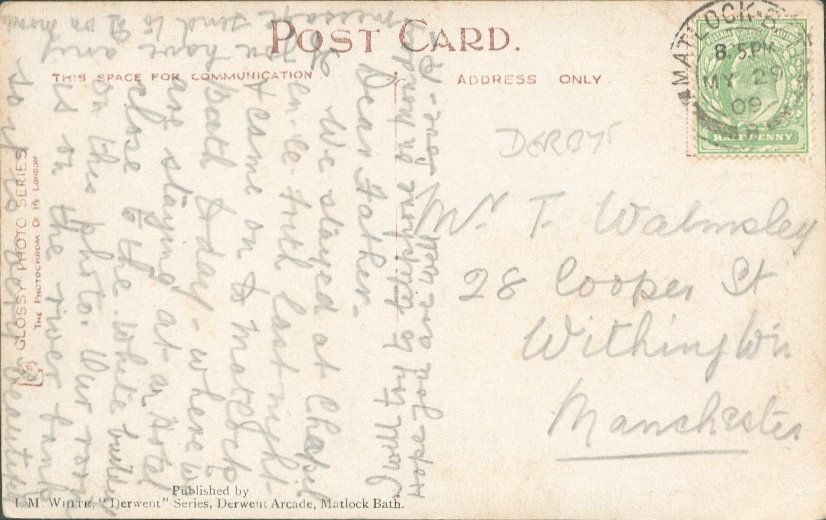 POST CARD.
THIS SPACE FOR COMMUNICATION
ADDRESS ONLY.
MATLOCK-B
8.5.PM
MY 29
09
HALFPENNY
DERBYS
Mr T. Walmsley
28 Cooper St
Withington
Manchester
Dear Father.
We stayed at Chapel
en-le-Frith last night
& came on to Matlock
Bath today - where we
are staying at an hotel
close to the white building
on this photo. Our room
is on the river bank
so it is very beautiful
If you have any
message send to
I will try to telephone on monday
Hope you are well Love
GLOSSY PHOTO SERIES
THE PHOTOCHROM CO LD LONDON
Published by
J. M. WHITE, "Derwent" Series, Derwent Arcade, Matlock Bath.